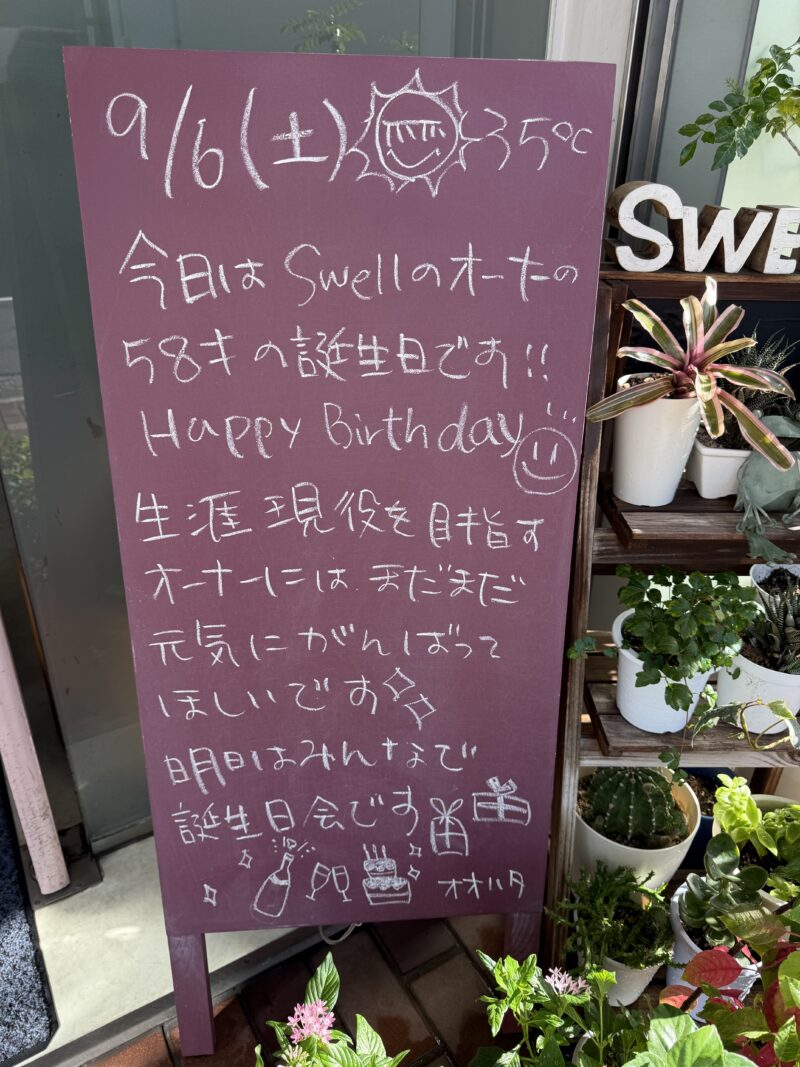 9/6(土) 35℃
今日は Swellのオーナーの
58才の誕生日です!!
Happy Birthday
生涯現役を目指す
オーナーには まだまだ
元気にがんばって
ほしいです
明日はみんなで
誕生日会です
オオハタ
SWE